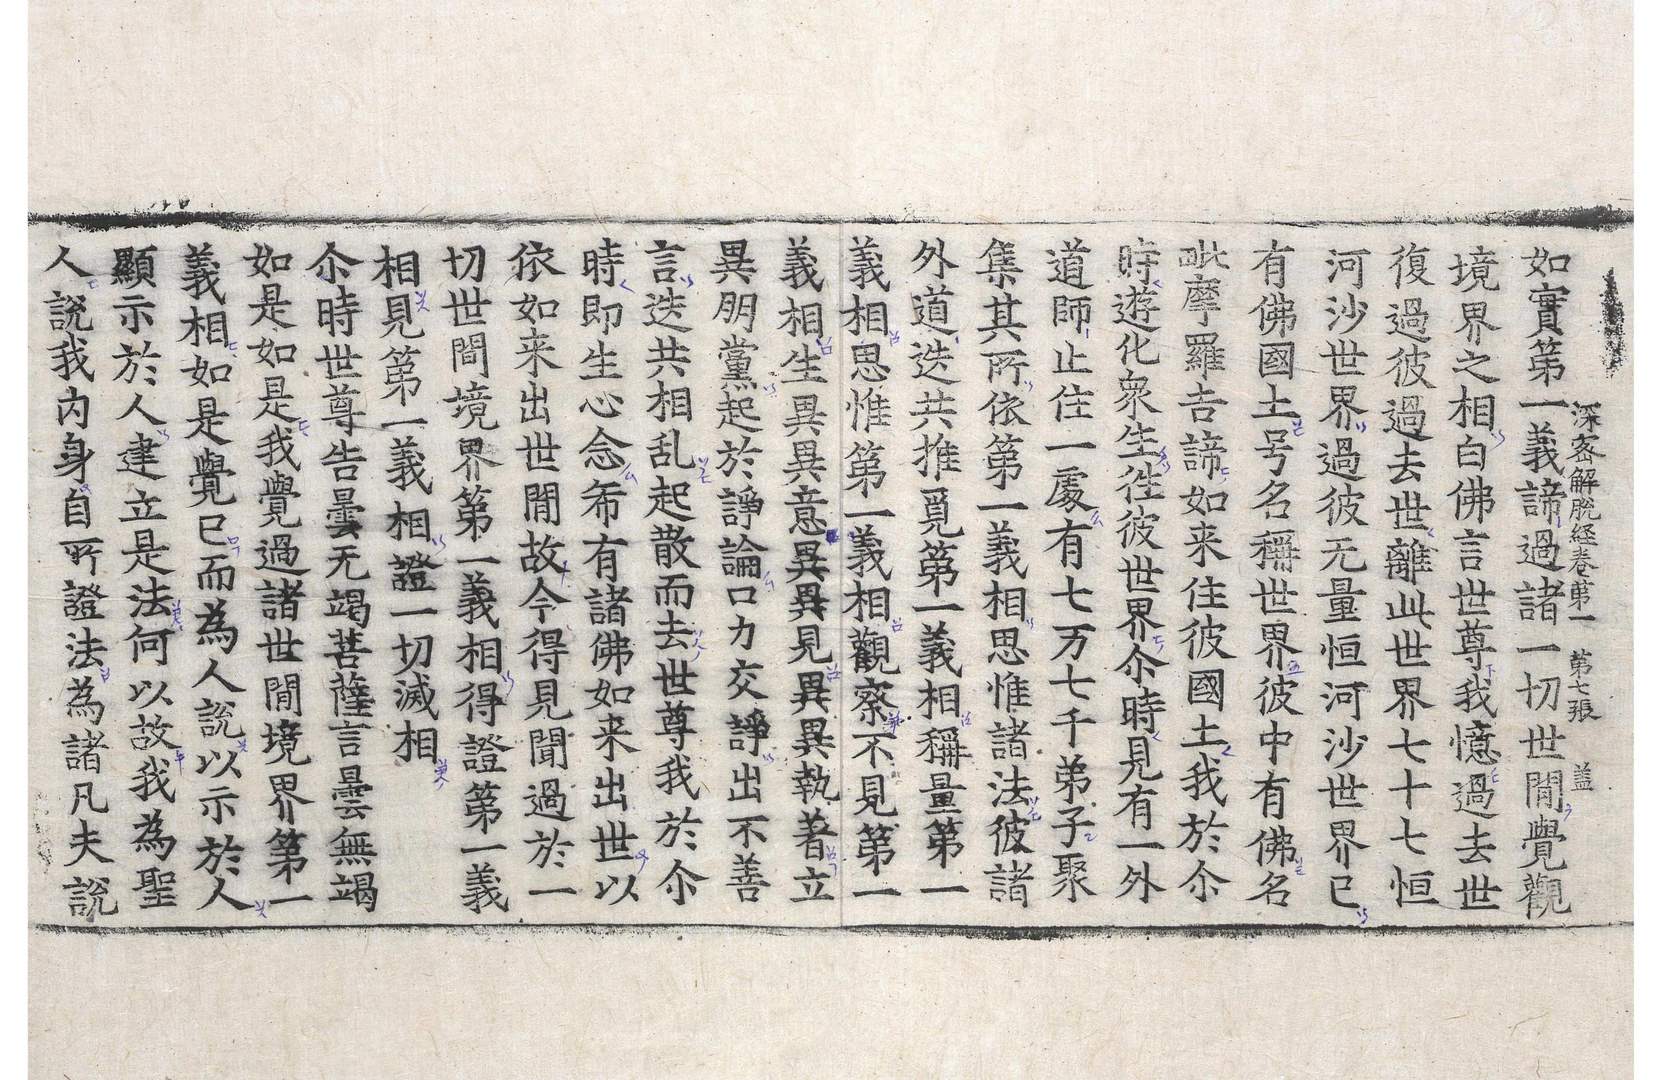 深密解脱経卷第一 第七張 盖
如實第一義諦過諸一切世間覺觀
境界之相白佛言世尊我憶過去世
復過彼過去世離此世界七十七恒
河沙世界過彼无量恒河沙世界已
有佛國土号名稱世界彼中有佛名
毗摩羅吉諦如来住彼國土我於尒
時遊化衆生徃彼世界尒時見有一外
道師止住一處有七万七千弟子聚
集其所依第一義相思惟諸法彼諸
外道迭共推覓第一義相稱量第一
義相思惟第一義相觀察不見第一
義相生異異意異異見異異執著立
異朋黨起於諍論口力交諍出不善
言迭共相乱起散而去世尊我於尒
時即生心念希有諸佛如来出世以
依如来出世間故今得見聞過於一
切世間境界第一義相得證第一義
相見第一義相證一切滅相
尒時世尊告曇无竭菩薩言曇無竭
如是如是我覺過諸世間境界第一
義相如是覺已而為人說以示於人
顯示於人建立是法何以故我為聖
人說我内身自所證法為諸凡夫說